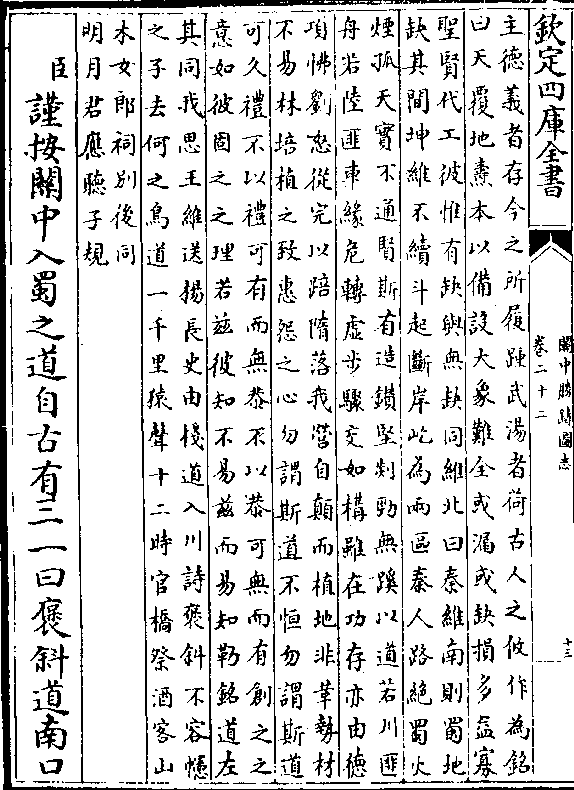 欽定四庫全書
關中勝蹟圖志
卷二十二
十三
主德義者存今之所履踵武湯者荷古人之攸作為銘
曰天覆地燾本以備設大象難全或漏或缺損多益寡
聖賢代工彼惟有缺與無缺同維北曰秦維南則蜀地
缺其間坤維不續斗起斷岸屹為兩區秦人路絕蜀火
煙孤天實不通賢斯有造鑽堅剗勁無蹊以道若川匪
舟若陸匪車緣危轉虛步驟交如構雖在功存亦由德
項怫劉怒從完以踣隋落我營自顛而植地非華勢材
不易林培植之致惠怨之心勿謂斯道不恒勿謂斯道
可久禮不以禮可有而無恭不以恭可無而有創之之
意如彼固之之理若茲彼知不易茲而易知勒銘道左
其同我思王維送楊長史由棧道入川詩褒斜不容幰
之子去何之鳥道一千里猿聲十二時官橋祭酒客山
木女郎祠別後同
明月君應聽子規
臣謹按關中入蜀之道自古有二一曰褒斜道南口